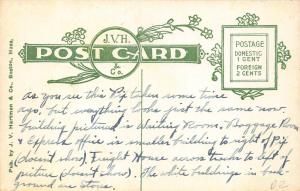 J.V.H.
& Co.
POST CARD
POSTAGE
DOMESTIC
1 CENT
FOREIGN
2 CENTS
Pub. by J. V. Hartman & Co., Boston, Mass.
as you see this Pic taken some time
ago, but everything looks just the same now.
building pictured is Waiting Room, Baggage Room
& Express office is smaller building to right of Pic
(doesn't show) Freight House across tracks to left of
picture (doesn't show). The white buildings in back
ground are stores.